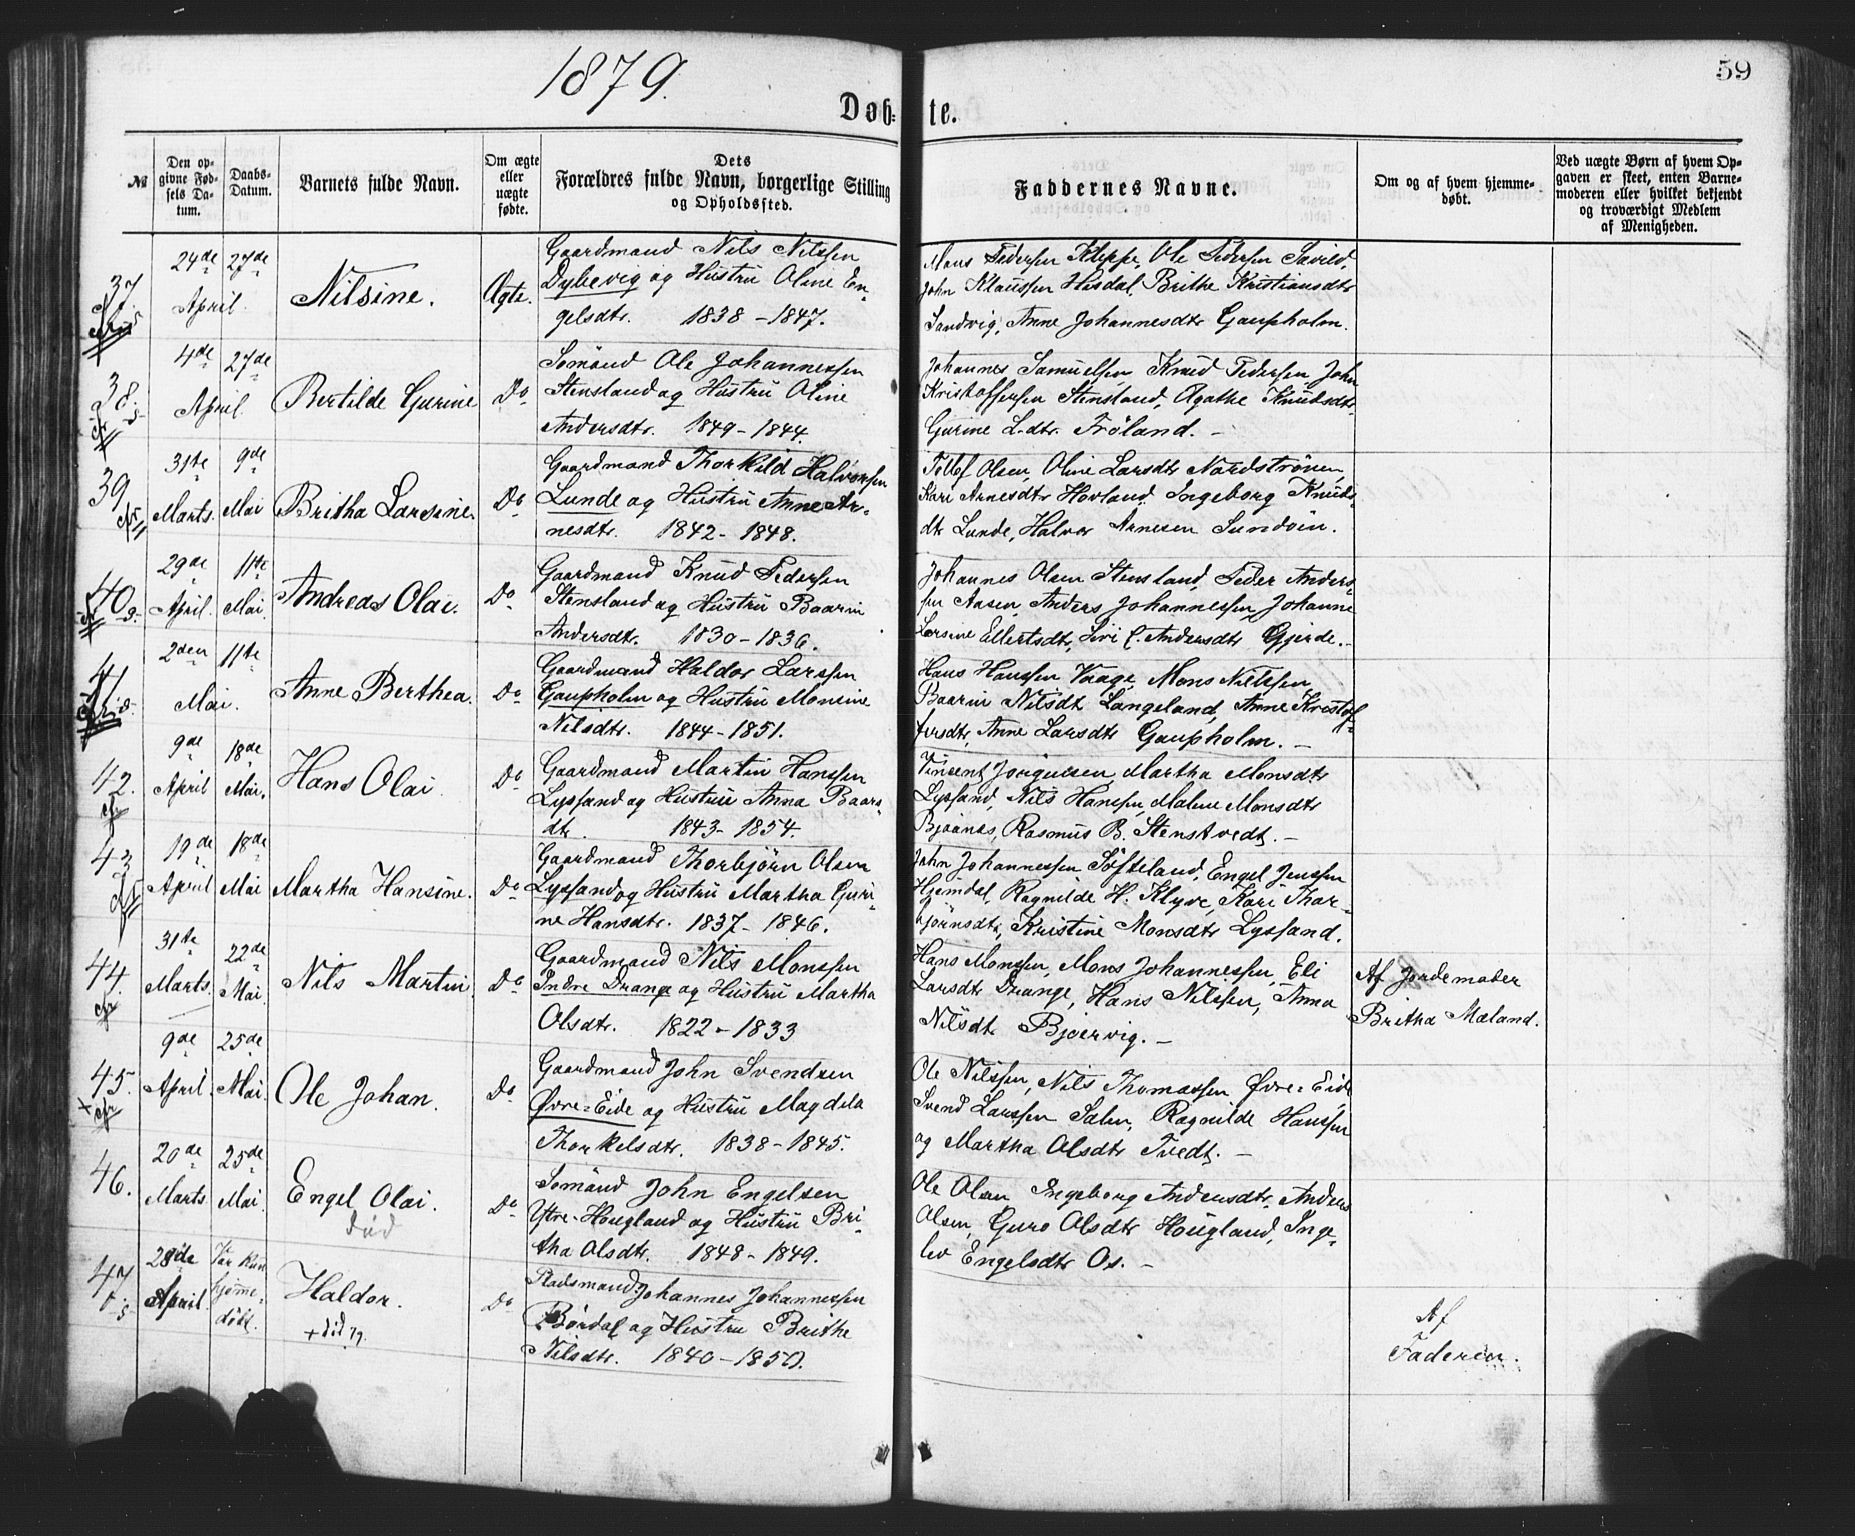 1879.
59
Døb-te.
№
Den opgivne Fødsels Datum.
Daabs-Datum.
Barnets fulde Navn.
Om ægte eller uægte fødte.
Dets Forældres fulde Navn, borgerlige Stilling og Opholdssted.
Faddernes Navne.
Om og af hvem hjemmedøbt.
Ved uægte Børn af hvem Opgaven er skeet, enten Barnemoderen eller hvilket bekjendt og troværdigt Medlem af Menigheden.
37.
24de April
27de
Nilsine.
Ægte.
Gaardmand Nils Nilssen
Dybevig og Hustru Oline En-
gelsdtr. 1838 - 1847.
Mons Pedersen Kleppe, Ole Pedersen Sævild,
John Klaussen Hisdal, Brithe Kristiansdtr
Sandvig, Anne Johannesdtr Gaupholm.
38.
4de April
27de
Bertilde Gurine
Do
Sømand Ole Johannessen
Stensland og Hustru Oline
Andersdtr. 1849 - 1844.
Johannes Samuelsen Knud Pedersen John
Kristoffersen Stensland, Agathe Knudsdtr
Gurine L.dtr. Frøland. -
39
31te Marts.
9de Mai
Britha Larsine.
Do
Gaardmand Thorkild Halvorsen
Lunde og Hustru Anne Ar-
nesdtr. 1842 - 1848.
Tollef Olsen, Oline Larsdtr Nordstrønen,
Kari Arnesdtr Hovland, Ingeborg Knuds-
dtr Lunde, Halvor Arnesen Sundøin.
40
29de April.
11te Mai
Andreas Olai.
Do
Gaardmand Knud Pedersen
Stensland og Hustru Baarni
Andersdtr. 1830 - 1836.
Johannes Olsen Stensland, Peder Anders-
sen Aasen, Anders Johannessen, Johanne
Larsine Ellertsdtr, Siri C. Andersdtr Gjerde. -
41
2den Mai.
11te
Anne Berthea.
Do
Gaardmand Haldor Larssen
Gaupholm og Hustru Monsine
Nilsdtr. 1844 - 1851.
Hans Hanssen Vaage, Mons Nilssen,
Baarni Nilsdt Langeland, Anne Kristof-
fersdtr, Anne Larsdtr Gaupholm. -
42.
9de April
18de Mai.
Hans Olai
Do
Gaardmand Martin Hanssen
Lyssand og Hustru Anna Baars-
dtr. 1843 - 1854.
Vincent Jørgensen, Martha Monsdtr
Lyssand, Nils Hanssen, Malene Monsdtr
Bjøånes, Rasmus B. Stenstvedt. -
43
19de April
18de Mai
Martha Hansine.
Do
Gaardmand Thorbjörn Olsen
Lyssand og Hustru Martha Guri-
ne Hansdtr. 1837 - 1846.
John Johannessen Søfteland, Engel Jenssen
Hjemdal, Ragnilde H. Klyve, Kari Thor-
bjørnsdtr, Kristine Monsdtr Lyssand.
44.
31te Marts.
22de Mai.
Nils Martin.
Do
Gaardmand Nils Monssen
Indre Drange og Hustru Martha
Olsdtr. 1822 - 1833
Hans Monssen, Mons Johannessen, Eli
Larsdtr Drange, Hans Nilssen, Anna
Nilsdtr Bjørvig. -
Af Jordemoder
Britha Mæland.
45.
9de April.
25de Mai.
Ole Johan.
Do
Gaardmand John Svendsen
Øvre=Eide og Hustru Magdela
Thorkelsdtr. 1838 - 1845.
Ole Nilssen, Nils Thomassen Øvre=Eide
Svend Larssen Salen, Ragnilde Hanssen
og Martha Olsdtr Tvedt. -
46.
20de Marts
25de Mai.
Engel Olai.
død
Do
Sømand John Engelsen
Ytre-Hougland og Hustru Bri-
tha Olsdtr. 1848 - 1849.
Ole Olsen Ingeborg Andersdtr, Anders
Olsen, Guro Olsdtr Hougland, Inge-
lev Engelsdtr Os. -
47
28de April.
Var kun
hjemme-
døbt.
Haldor.
+ død 79.
Do
Pladsmand Johannes Johannessen
Børdal og Hustru Brithe
Nilsdtr. 1840 - 1850.
Af
Faderen.